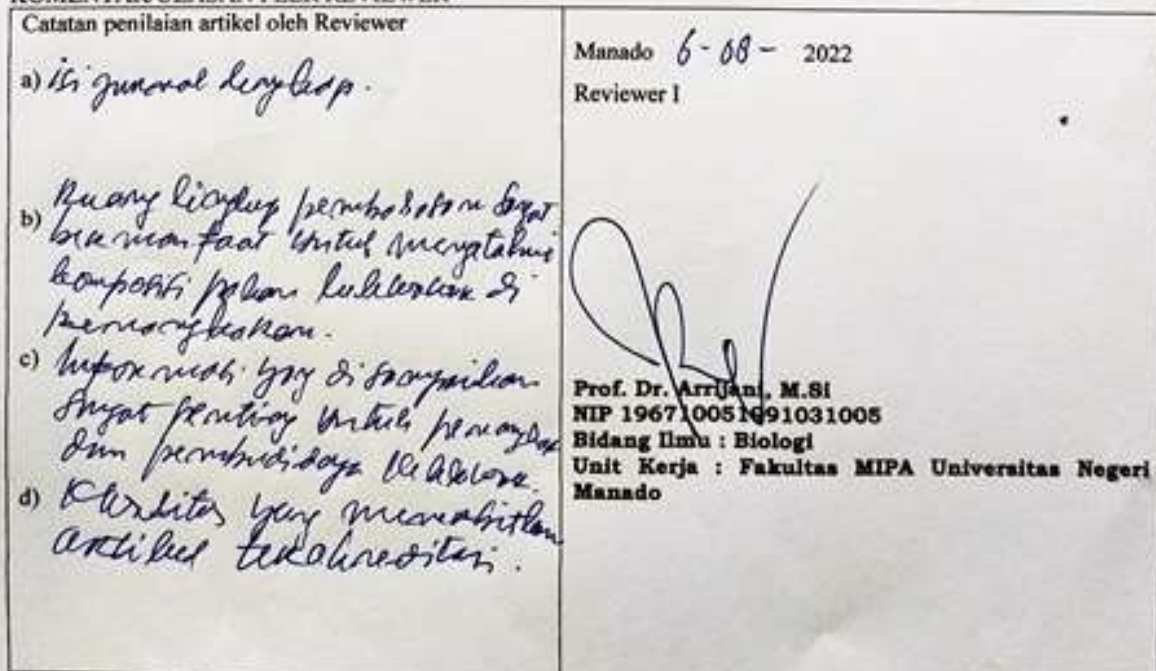 Catatan penilaian artikel oleh Reviewer
a) isi jurnal lengkap.
b) Ruang lingkup pembahasan sangat
bermanfaat untuk mengetahui
komposisi pakan kelelawar di
penangkaran.
c) Informasi yang disampaikan
sangat penting untuk penangkar
dan pembudidaya kelelawar.
d) yang menerbitkan
artikel terakreditasi.
Manado 6-08- 2022
Reviewer I
Prof. Dr. Arrijani, M.Si
NIP 196710051991031005
Bidang Ilmu : Biologi
Unit Kerja : Fakultas MIPA Universitas Negeri
Manado